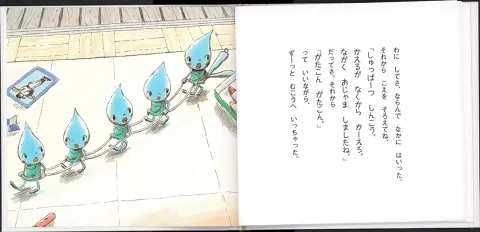 わに してさ、ならんで なかに はいった。
それから こえを そろえてね、
「しゅっぱーつ しんこう。
かえるが なくから かーえろ。
ながく おじゃま しましたね。」
だってさ。それから
「がたごん がたごん。」
って いいながら、
ずーっと むこうへ いっちゃった。